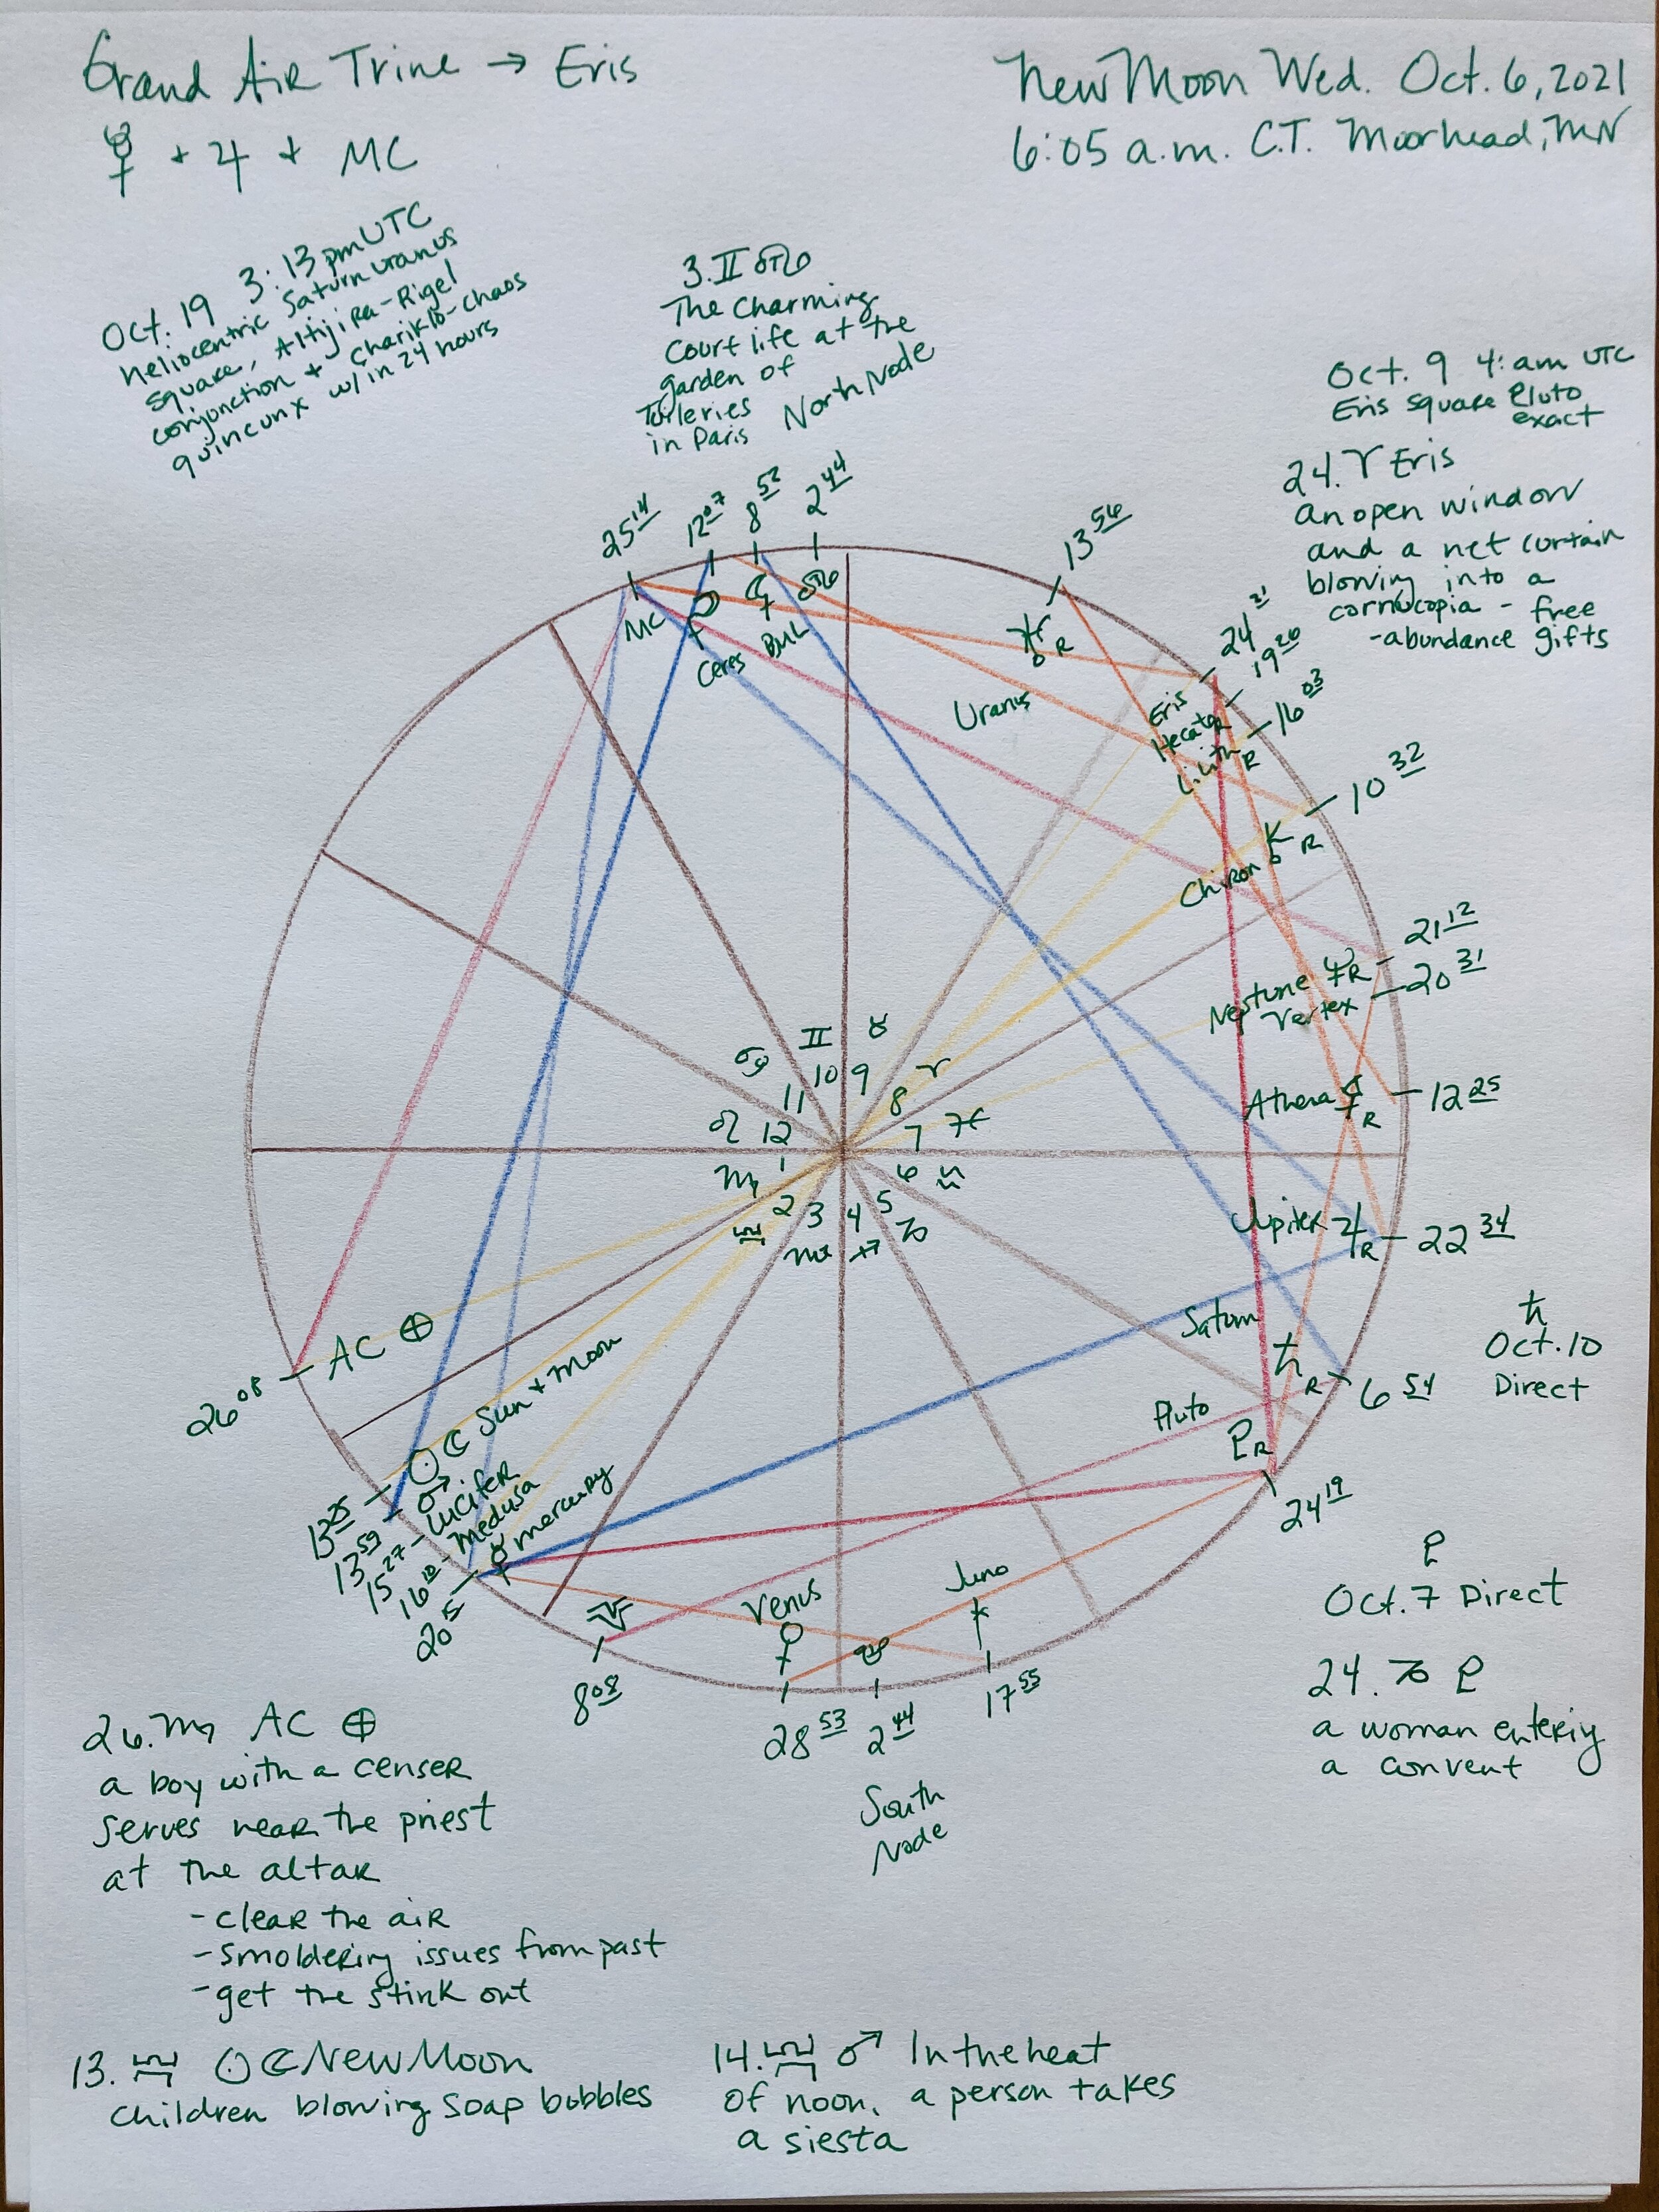 Grand Air Trine → Eris
☿ + ♃ + MC
New Moon Wed. Oct. 6, 2021
6:05 a.m. C.T. Moorhead, MN
Oct. 19 3:13 pm UTC
heliocentric Saturn Uranus
square, Altjira-Rigel
conjunction + Chariklo-Chaos
quincunx w/in 24 hours
3. ♊ ☊
The Charming
Court life at the
garden of
Tuileries
in Paris North Node
Oct. 9 4: am UTC
Eris square Pluto
exact
24. ♈ Eris
an open window
and a net curtain
blowing into a
cornucopia - free
-abundance gifts
25 14
12 07
8 52
2 44
13 56
24 21
19 26
16 03
10 32
21 12
20 31
12 25
22 34
6 54
24 19
MC
Ceres
BML
☊
♅ R
Uranus
Eris
Hecate R
Lilith R
Chiron ⚷ R
Neptune ♆ R
Vertex
Athena ⚴ R
Jupiter ♃ R
Saturn
♄ R
Pluto
♇ R
♊ ♉
♋ 10 9 ♈
11 8
♌ 12 7 ♓
♍ 1 6 ♒
2 3 4 5 ♑
♎ ♏ ♐
26 08 AC ⊕
☉ ☾ Sun + Moon
13 25
13 59 ♂
15 27 - Lucifer
16 10 - Medusa
20 15 ☿ mercury
8 08
Venus
♀
28 53
☋
2 44
South
Node
Juno
17 55
♄
Oct. 10
Direct
♇
Oct. 7 Direct
24. ♑ ♇
a woman entering
a convent
26. ♍ AC ⊕
a boy with a censer
serves near the priest
at the altar
- clear the air
- smoldering issues from past
- get the stink out
13. ♎ ☉☾ New Moon
Children blowing soap bubbles
14. ♎ ♂ In the heat
of noon, a person takes
a siesta